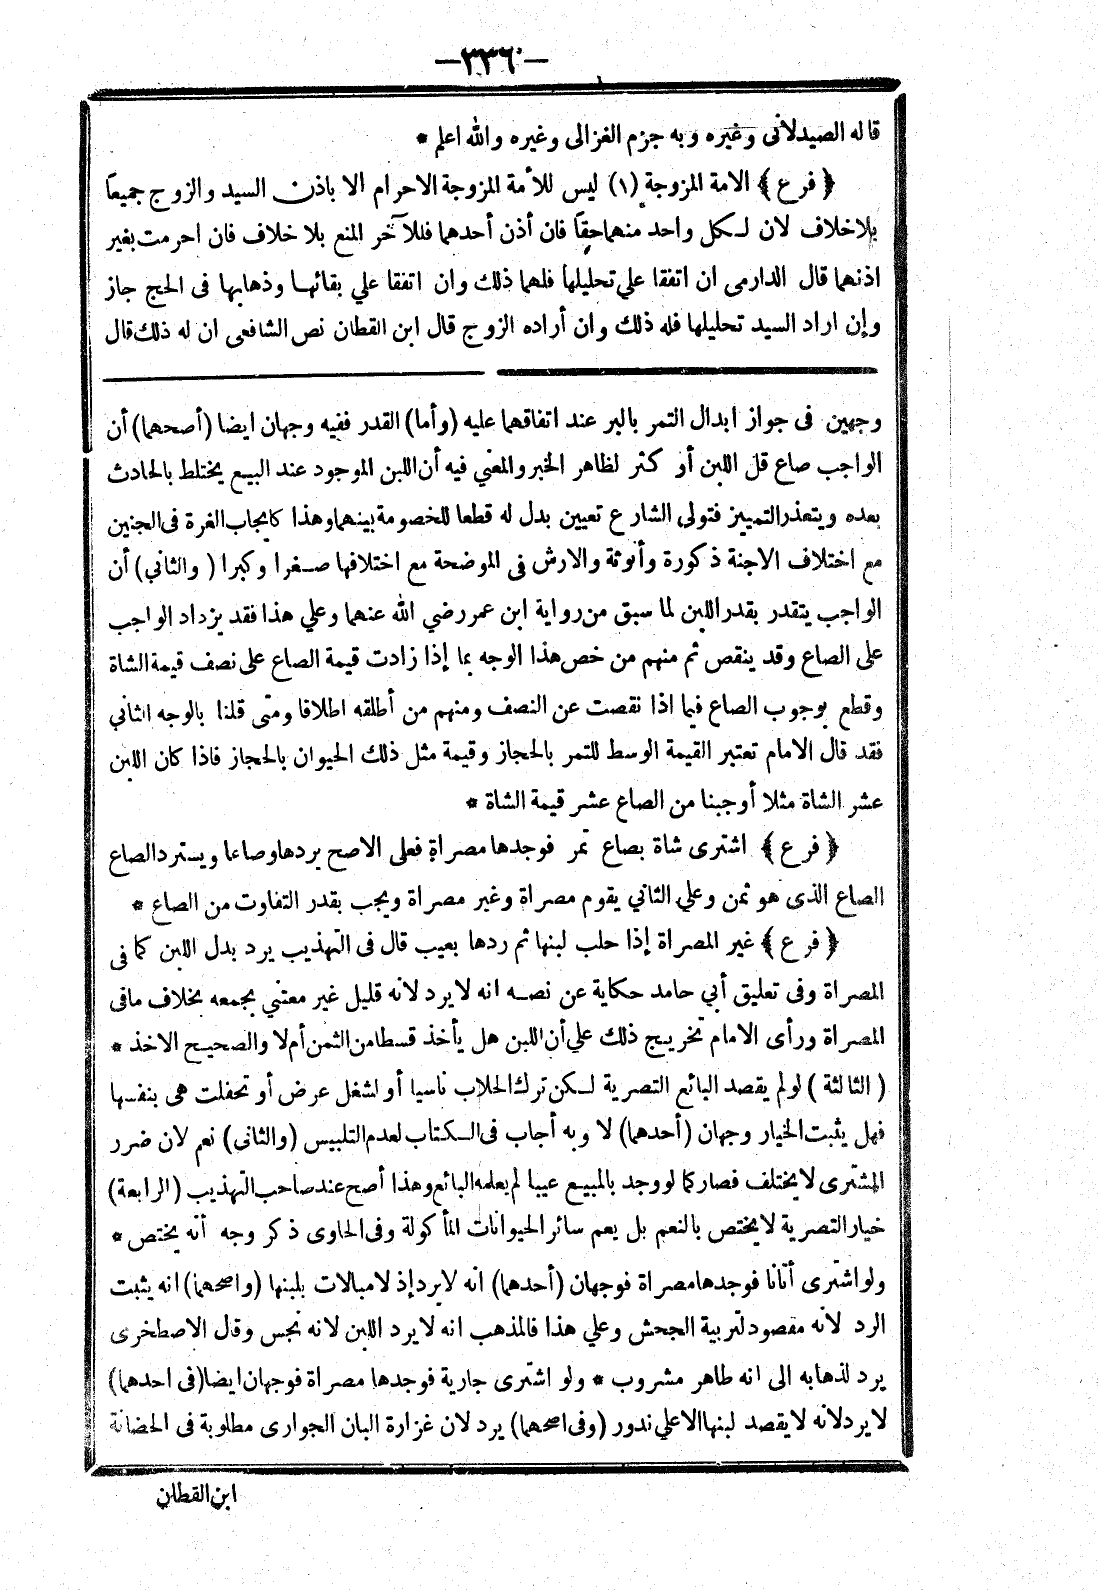 —٣٣٦—
قاله الصيدلانى وغيره وبه جزم الغزالى وغيره والله اعلم *
﴿ فرع ﴾ الامة المزوجة (١) ليس للأمة المزوجة الاحرام الا باذن السيد والزوج جميعا
بلاخلاف لان لكل واحد منهما حقا فان أذن أحدهما فللآخر المنع بلا خلاف فان احرمت بغير
اذنهما قال الدارمى ان اتفقا علي تحليلها فلهما ذلك وان اتفقا علي بقائها وذهابها فى الحج جاز
وإن اراد السيد تحليلها فله ذلك وان أراده الزوج قال ابن القطان نص الشافعى ان له ذلك قال
وجهين فى جواز ابدال التمر بالبر عند اتفاقهما عليه (وأما) القدر ففيه وجهان ايضا (أصحهما) أن
الواجب صاع قل اللبن أو كثر لظاهر الخبر والمعني فيه أن اللبن الموجود عند البيع يختلط بالحادث
بعده ويتعذر التمييز فتولى الشارع تعيين بدل له قطعا للخصومة بينهما وهذا كايجاب الغرة فى الجنين
مع اختلاف الاجنة ذكورة وأنوثة والارش فى الموضحة مع اختلافها صغرا وكبرا ( والثاني ) أن
الواجب يتقدر بقدر اللبن لما سبق من رواية ابن عمر رضي الله عنهما وعلي هذا فقد يزداد الواجب
على الصاع وقد ينقص ثم منهم من خص هذا الوجه بما إذا زادت قيمة الصاع على نصف قيمة الشاة
وقطع بوجوب الصاع فيما اذا نقصت عن النصف ومنهم من أطلقه اطلاقا ومتى قلنا بالوجه الثاني
فقد قال الامام تعتبر القيمة الوسط للتمر بالحجاز وقيمة مثل ذلك الحيوان بالحجاز فاذا كان اللبن
عشر الشاة مثلا أوجبنا من الصاع عشر قيمة الشاة *
﴿ فرع ﴾ اشترى شاة بصاع تمر فوجدها مصراة فعلى الاصح يردها وصاعا ويسترد الصاع
الصاع الذى هو ثمن وعلي الثاني يقوم مصراة وغير مصراة ويجب بقدر التفاوت من الصاع *
﴿ فرع ﴾ غير المصراة إذا حلب لبنها ثم ردها بعيب قال فى التهذيب يرد بدل اللبن كما فى
المصراة وفى تعليق أبي حامد حكاية عن نصه انه لا يرد لانه قليل غير معتني بجمعه بخلاف مافى
المصراة ورأى الامام تخريج ذلك علي أن اللبن هل يأخذ قسطا من الثمن أم لا والصحيح الاخذ *
( الثالثة ) لو لم يقصد البائع التصرية لكن ترك الحلاب ناسيا أو لشغل عرض أو تحفلت هى بنفسها
فهل يثبت الخيار وجهان (أحدهما) لا وبه أجاب فى الكتاب لعدم التلبيس (والثانى) نعم لان ضرر
المشترى لا يختلف فصار كما لو وجد بالمبيع عيبا لم يعلمه البائع وهذا أصح عند صاحب التهذيب (الرابعة)
خيار التصرية لا يختص بالنعم بل يعم سائر الحيوانات المأكولة وفى الحاوى ذكر وجه أنه يختص *
ولو اشترى أتانا فوجدها مصراة فوجهان (أحدهما) انه لا يرد إذ لا مبالات بلبنها (واصحهما) انه يثبت
الرد لانه مقصود لتربية الجحش وعلي هذا فالمذهب انه لا يرد اللبن لانه نجس وقال الاصطخرى
يرد لذهابه الى انه طاهر مشروب * ولو اشترى جارية فوجدها مصراة فوجهان ايضا (فى احدهما)
لا يرد لانه لا يقصد لبنها الا علي ندور (وفى اصحهما) يرد لان غزارة البان الجوارى مطلوبة فى الحضانة
ابن القطان